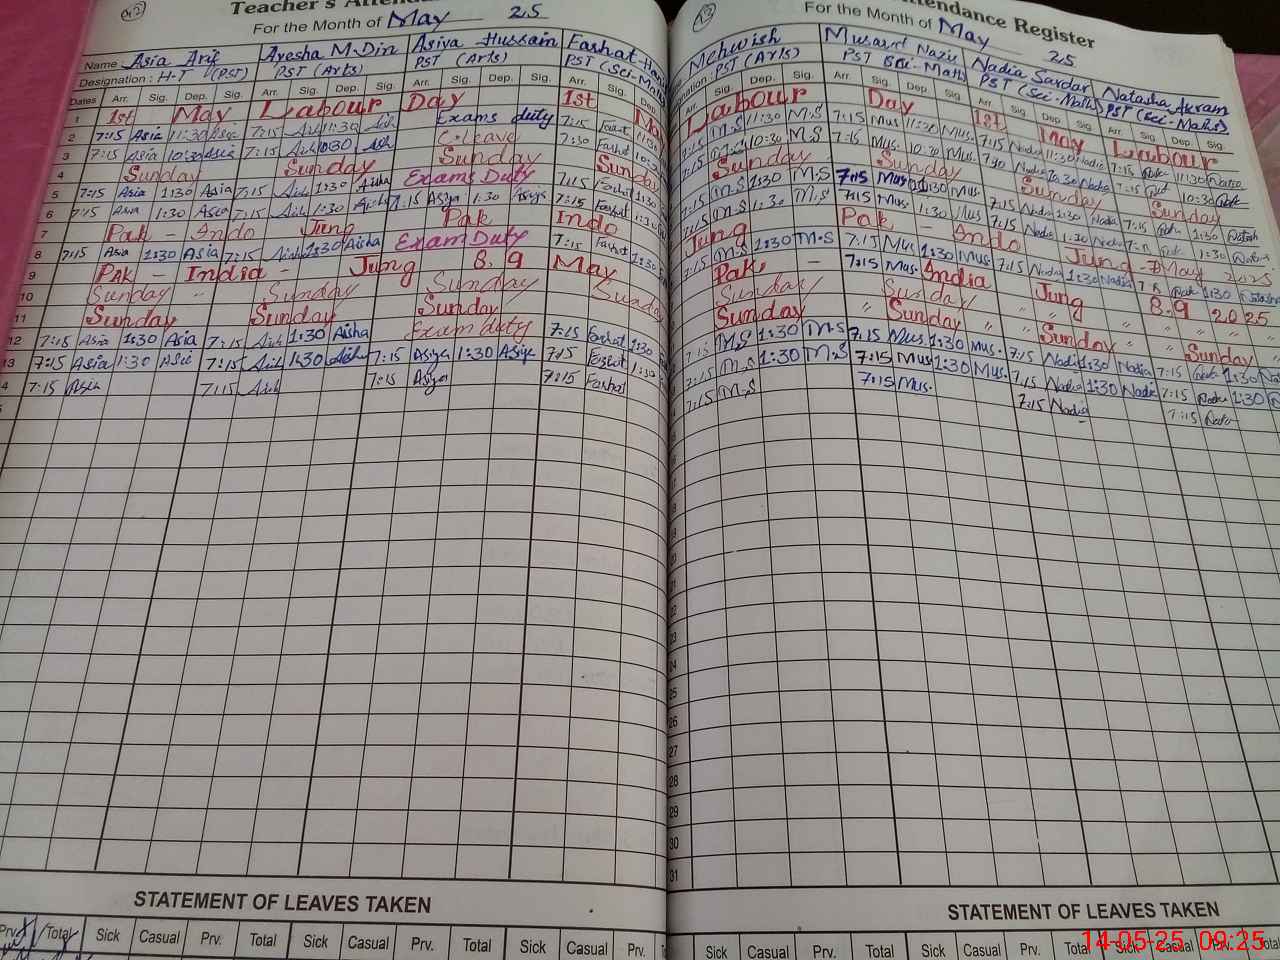 Teacher's Atten
For the Month of May 25
Name Asia Arif Ayesha M.Din Asiya Hussain Farhat
Designation: H-T (PST) PST (Arts) PST (Arts) PST (Sci-Math
Dates Arr. Sig. Dep. Sig. Arr. Sig. Dep. Sig. Arr. Sig. Dep. Sig. Arr. Sig. Dep
1 1st May Labour Day 1st May
2 7:15 Asia 11:30 Asia 7:15 11:30 Exams duty 7:15
3 7:15 Asia 10:30 Asia 7:15 10:30 C-leave 7:30
4 Sunday Sunday Sunday Sunday
5 7:15 Asia 1:30 Asia 7:15 1:30 Aisha Exams Duty 7:15 Farhat 1:30
6 7:15 Asia 1:30 Asia 7:15 1:30 7:15 Asiya 1:30 Asiya 7:15 Farhat 1:30
7 Pak - Indo Jung Pak Indo
8 7:15 Asia 1:30 Asia 7:15 Aisha 1:30 Aisha Exam Duty 7:15 Farhat 1:30
9 PAK - India - Jung 8.9 May
10 Sunday " Sunday Sunday Sunday
11 Sunday Sunday Sunday
12 7:15 Asia 1:30 Asia 7:15 1:30 Aisha Exam duty 7:15 Farhat 1:30
13 7:15 Asia 1:30 Asia 7:15 1:30 Aisha 7:15 Asiya 1:30 Asiya 7:15 1:30
4 7:15 Asia 7:15 7:15 Asiya 7:15 Farhat
STATEMENT OF LEAVES TAKEN
Prv. Total Sick Casual Prv. Total Sick Casual Prv. Total Sick Casual Prv.
tendance Register
For the Month of May 25
Mehwish Musarat Nazir Nadia Sardar Natasha Akram
gnation: PST (Arts) PST (Sci-Math) PST (Sci-Maths) PST (Sci-Maths)
Arr. Sig. Dep. Sig. Arr. Sig. Dep. Sig. Arr. Sig. Dep. Sig. Arr. Sig. Dep. Sig.
Labour Day 1st May Labour
7:15 M.S 11:30 M.S 7:15 Mus 11:30 Mus. 7:15 Nadia 11:30 Nadia 7:15 11:30
7:15 M.S 10:30 M.S 7:15 Mus. 10:30 Mus. 7:30 Nadia 10:30 Nadia 7:15 10:30
Sunday Sunday Sunday Sunday
7:15 M.S 1:30 M.S 7:15 Mus 1:30 Mus. 7:15 Nadia 1:30 Nadia 7:15 1:30
7:15 M.S 1:30 M.S 7:15 Mus. 1:30 Mus 7:15 Nadia 1:30 Nadia 7:15 1:30
Jung Pak - Indo Jung - May 2025
7:15 M.S 1:30 M.S 7:15 Mus. 1:30 Mus. 7:15 Nadia 1:30 Nadia 7:15 1:30
Pak - India Jung 8.9 2025
Sunday Sunday " " " " "
Sunday " Sunday " " Sunday " Sunday
7:15 M.S 1:30 M.S 7:15 Mus. 1:30 Mus. 7:15 Nadia 1:30 Nadia 7:15 1:30
7:15 M.S 1:30 M.S 7:15 Mus 1:30 Mus. 7:15 Nadia 1:30 Nadia 7:15 1:30
7:15 M.S 7:15 Mus. 7:15 Nadia 7:15
25
26
27
28
29
30
31
STATEMENT OF LEAVES TAKEN
Sick Casual Prv. Total Sick Casual Prv. Total Sick Casual Prv. Total
14-05-25 09:25